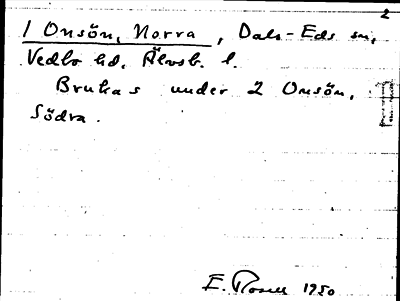 2
1 Onsön, Norra, Dals-Eds sn,
Vedbo hd. Älvsb. l.
Brukas under 2 Onsön,
Södra.
E. 1950